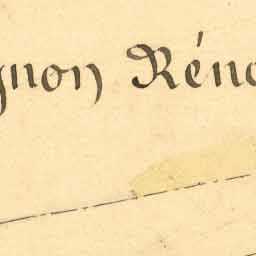 gnon Réno